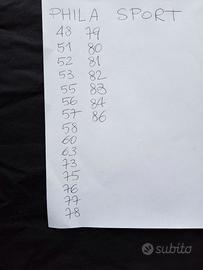 PHILA SPORT
48 79
51 80
52 81
53 82
55 83
56 84
57 86
58
60
63
73
75
76
77
78
subito